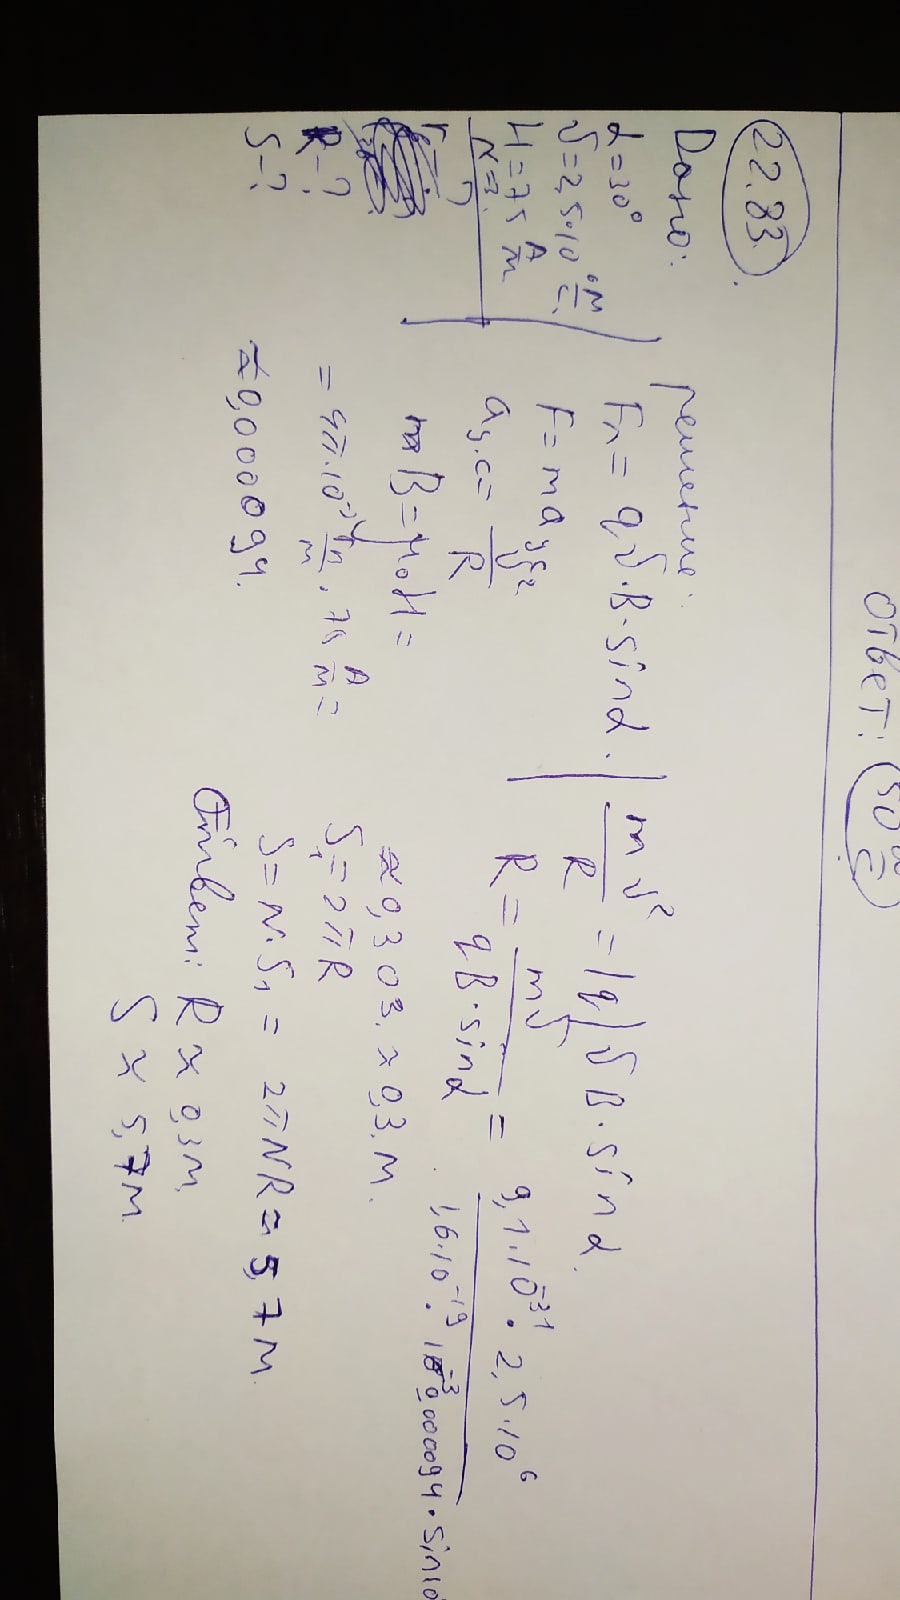 Ответ: 50 м/с
22.83.
Дано:
α=30°
υ=2,5·10⁶ м/с
H=75 А/м
N=3.
R-?
S-?
Решение:
Fл = qυ·B·sinα.
F=maц.с
aц.с= υ²/R
B=μ₀H=
= 4π·10⁻⁷ Гн/м · 75 А/м =
≈0,000094.
mυ²/R = |q|υB·sinα.
R = mυ/qB·sinα = 9,1·10⁻³¹·2,5·10⁶/1,6·10⁻¹⁹·0,000094·sin
≈ 0,303 ≈ 0,3 м.
S₁=2πR
S=N·S₁ = 2πNR = 5,7 м
Ответ: R ≈ 0,3м
S ≈ 5,7м